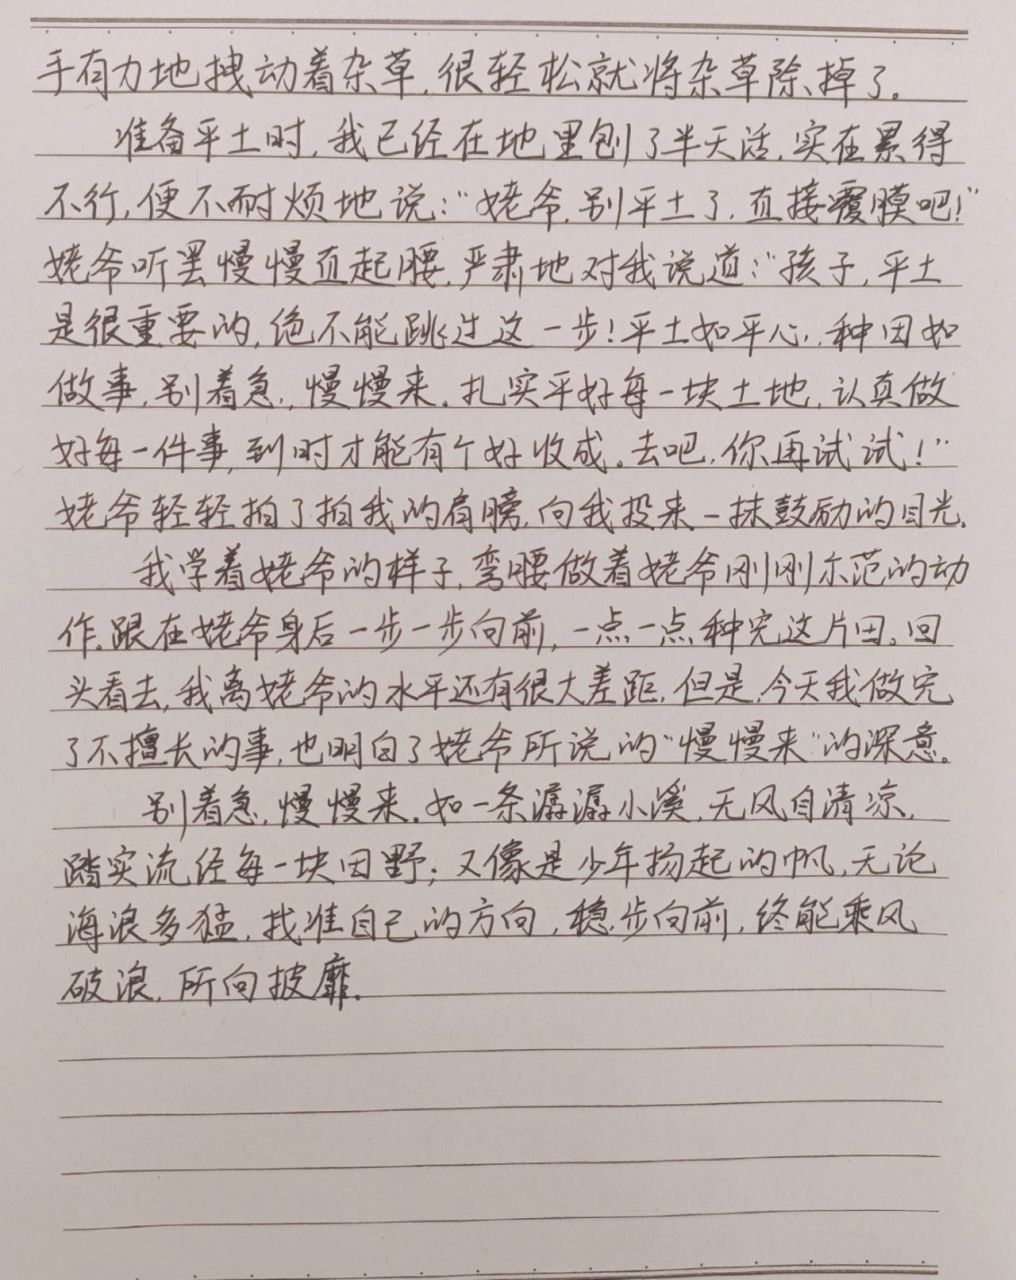 手有力地拽动着杂草，很轻松就将杂草除掉了。
准备平土时，我已经在地里刨了半天活，实在累得
不行，便不耐烦地说：“姥爷，别平土了，直接覆膜吧！”
姥爷听罢慢慢直起腰，严肃地对我说道：“孩子，平土
是很重要的，绝不能跳过这一步！平土如平心，种田如
做事，别着急，慢慢来。扎实平好每一块土地，认真做
好每一件事，到时才能有个好收成。去吧，你再试试！”
姥爷轻轻拍了拍我的肩膀，向我投来一抹鼓励的目光。
我学着姥爷的样子，弯腰做着姥爷刚刚示范的动
作。跟在姥爷身后一步一步向前，一点一点种完这片田。回
头看去，我离姥爷的水平还有很大差距，但是，今天我做完
了不擅长的事，也明白了姥爷所说的“慢慢来”的深意。
别着急，慢慢来。如一条潺潺小溪，无风自清凉，
踏实流经每一块田野；又像是少年扬起的帆，无论
海浪多猛，找准自己的方向，稳步向前，终能乘风
破浪，所向披靡。